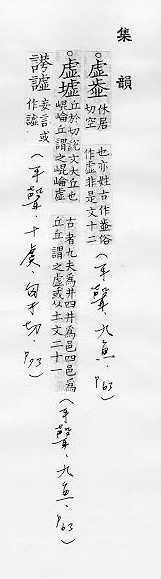 集韻
。虛䖏 休居切空也亦姓古作䖏俗作虛非是文十二(平聲、九魚、P63)
。虛墟 丘於切說文大丘也崐崘丘謂之崐崘虛古者九夫為井四井為邑四邑為丘丘謂之虛或从土文二十一(平聲、九魚、P63)
謣謔 妄言或作謔(平聲、十虞、匈于切、P73)